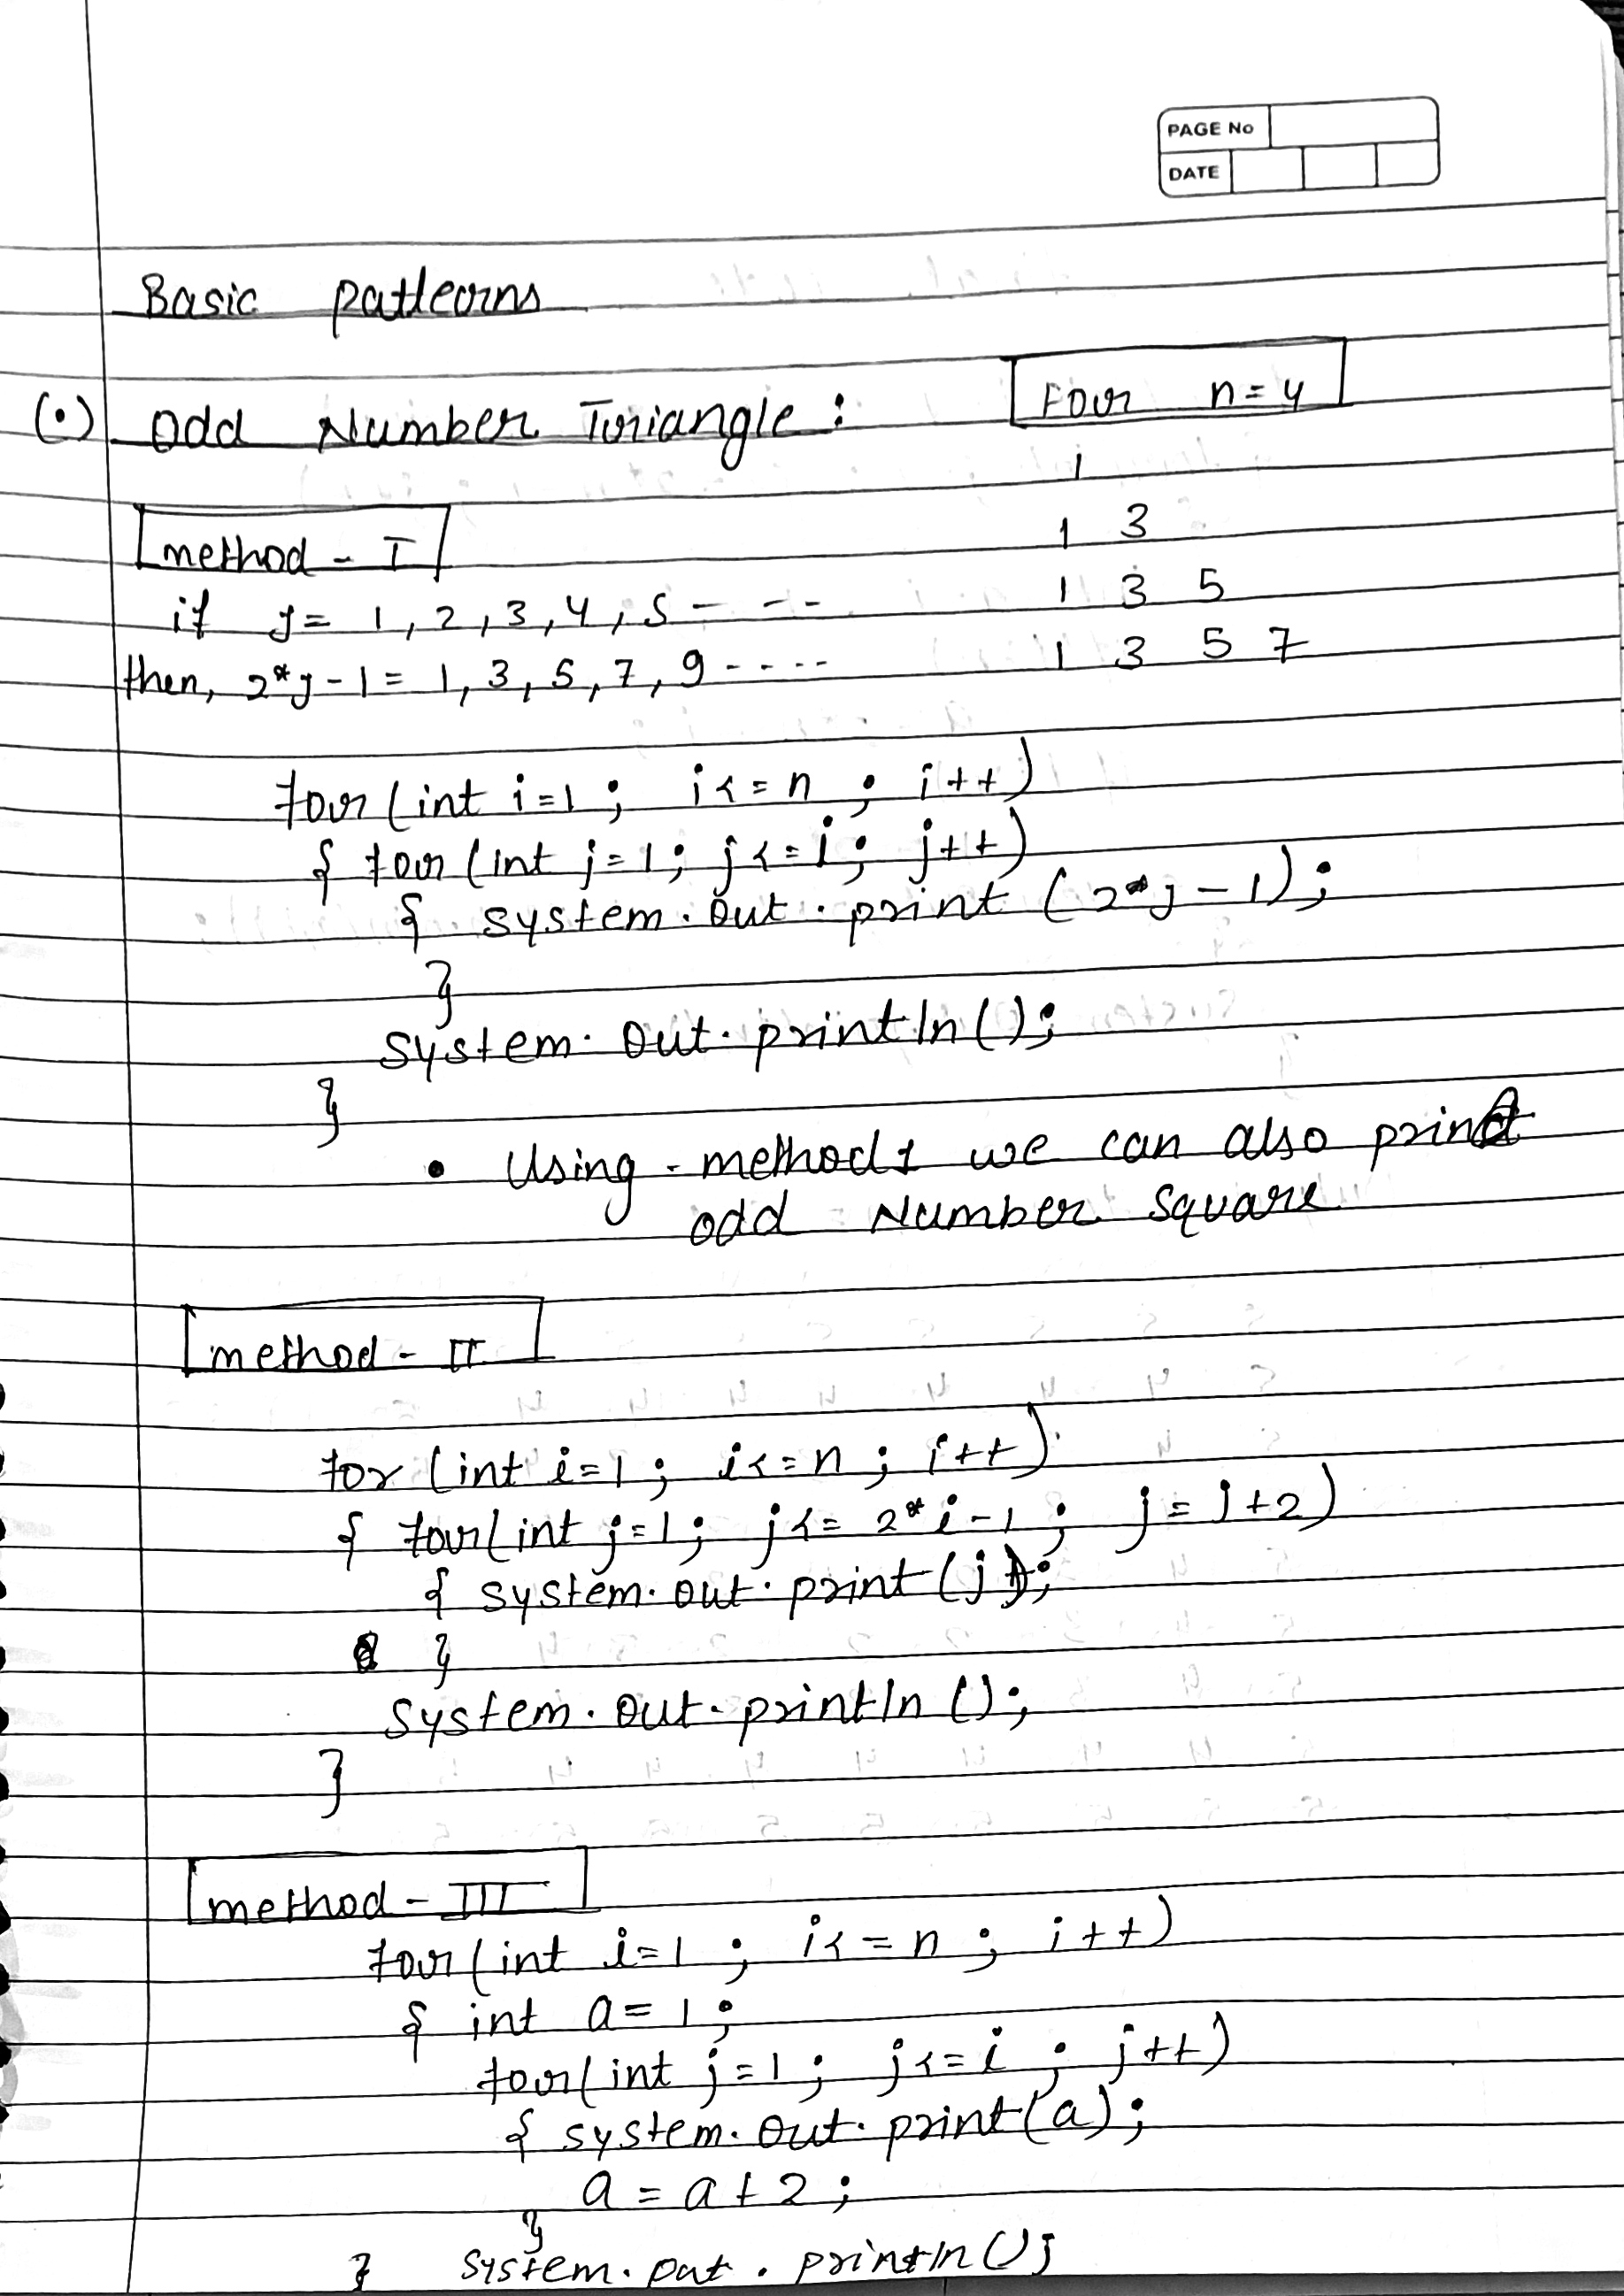 PAGE No
DATE
Basic patterns
(•) Odd Number Triangle :
For n=4
1
1 3
1 3 5
1 3 5 7
method - I
if j= 1, 2, 3, 4, 5 - - -
then, 2*j-1 = 1, 3, 5, 7, 9 - - - -
for (int i=1 ; i<=n ; i++)
{ for (int j=1; j<=i ; j++)
{ system.out.print (2*j-1);
}
system.out.println();
}
• Using - method 1 we can also print
odd Number square
method - II
for (int i=1 ; i<=n ; i++)
{ for(int j=1; j<= 2*i-1 ; j=j+2)
{ system.out.print(j);
}
system.out.println ();
}
method - III
for(int i=1 ; i<=n ; i++)
{ int a=1 ;
for(int j=1 ; j<=i ; j++)
{ system.out.print(a);
a = a+2 ;
}
} system.out.println();